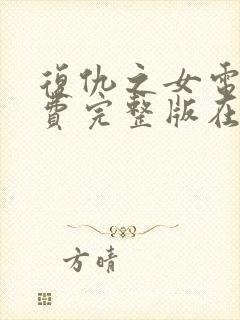 復仇之女電
費完整版在
方晴